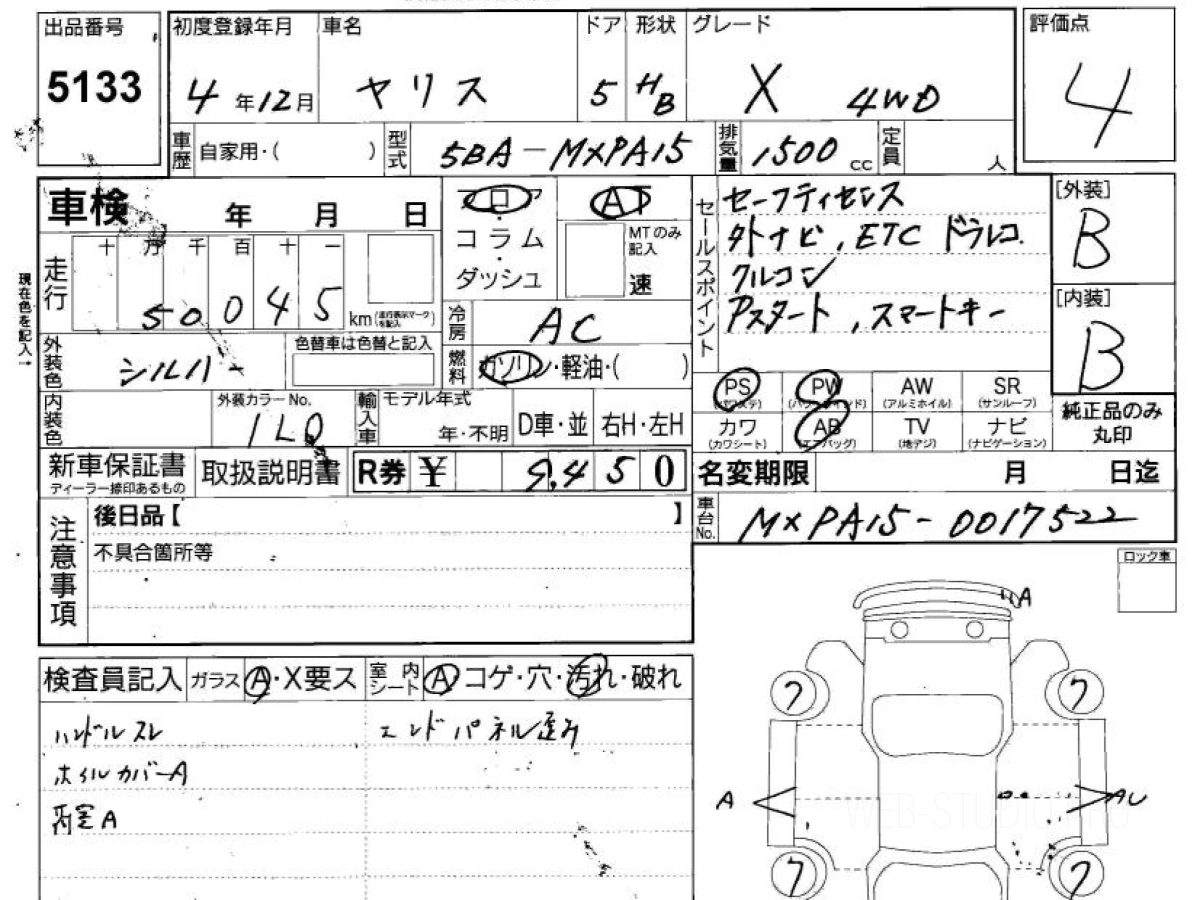 出品番号
5133
初度登録年月 車名 ドア 形状 グレード
4年12月 ヤリス 5 HB X 4WD
評価点
4
車歴 自家用・( ) 型式 5BA-MXPA15 排気量 1500cc 定員 人
車検 年 月 日
フロア AT
コラム
ダッシュ
MTのみ記入
速
セールスポイント
セーフティセンス
外ナビ,ETC ドラレコ
クルコン
アスタート,スマートキー
[外装]
B
[内装]
B
現在色を記入→
走行 十 万 千 百 十 一
50045 km(走行表示マークを記入)
冷房 AC
外装色 シルバー 色替車は色替と記入
燃料 ガソリン・軽油・( )
PS PW AW SR
(パワステ) (パワーウインド) (アルミホイル) (サンルーフ)
カワ AB TV ナビ
(カワシート) (エアバッグ) (地デジ) (ナビゲーション)
純正品のみ
丸印
内装色 外装カラーNo. 1L0 輸入車 モデル年式 年・不明 D車・並 右H・左H
新車保証書 取扱説明書 R券 ¥ 9,450
ディーラー捺印あるもの
名変期限 月 日迄
車台No. MXPA15-0017522
注意事項
後日品【 】
不具合箇所等
ロック車
検査員記入 ガラス A・X要ス 室内シート A コゲ・穴・汚れ・破れ
ハンドルスレ エンドパネル歪み
ホイルカバーA
A
A
フ フ
A AU
フ フ
WEB-STUDIO.PRO